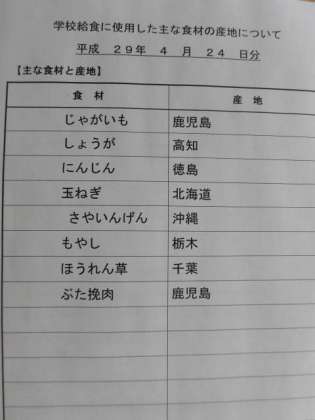 学校給食に使用した主な食材の産地について
平成 29年 4 月 24 日分
【主な食材と産地】
食 材 産 地
じゃがいも 鹿児島
しょうが 高知
にんじん 徳島
玉ねぎ 北海道
さやいんげん 沖縄
もやし 栃木
ほうれん草 千葉
ぶた挽肉 鹿児島